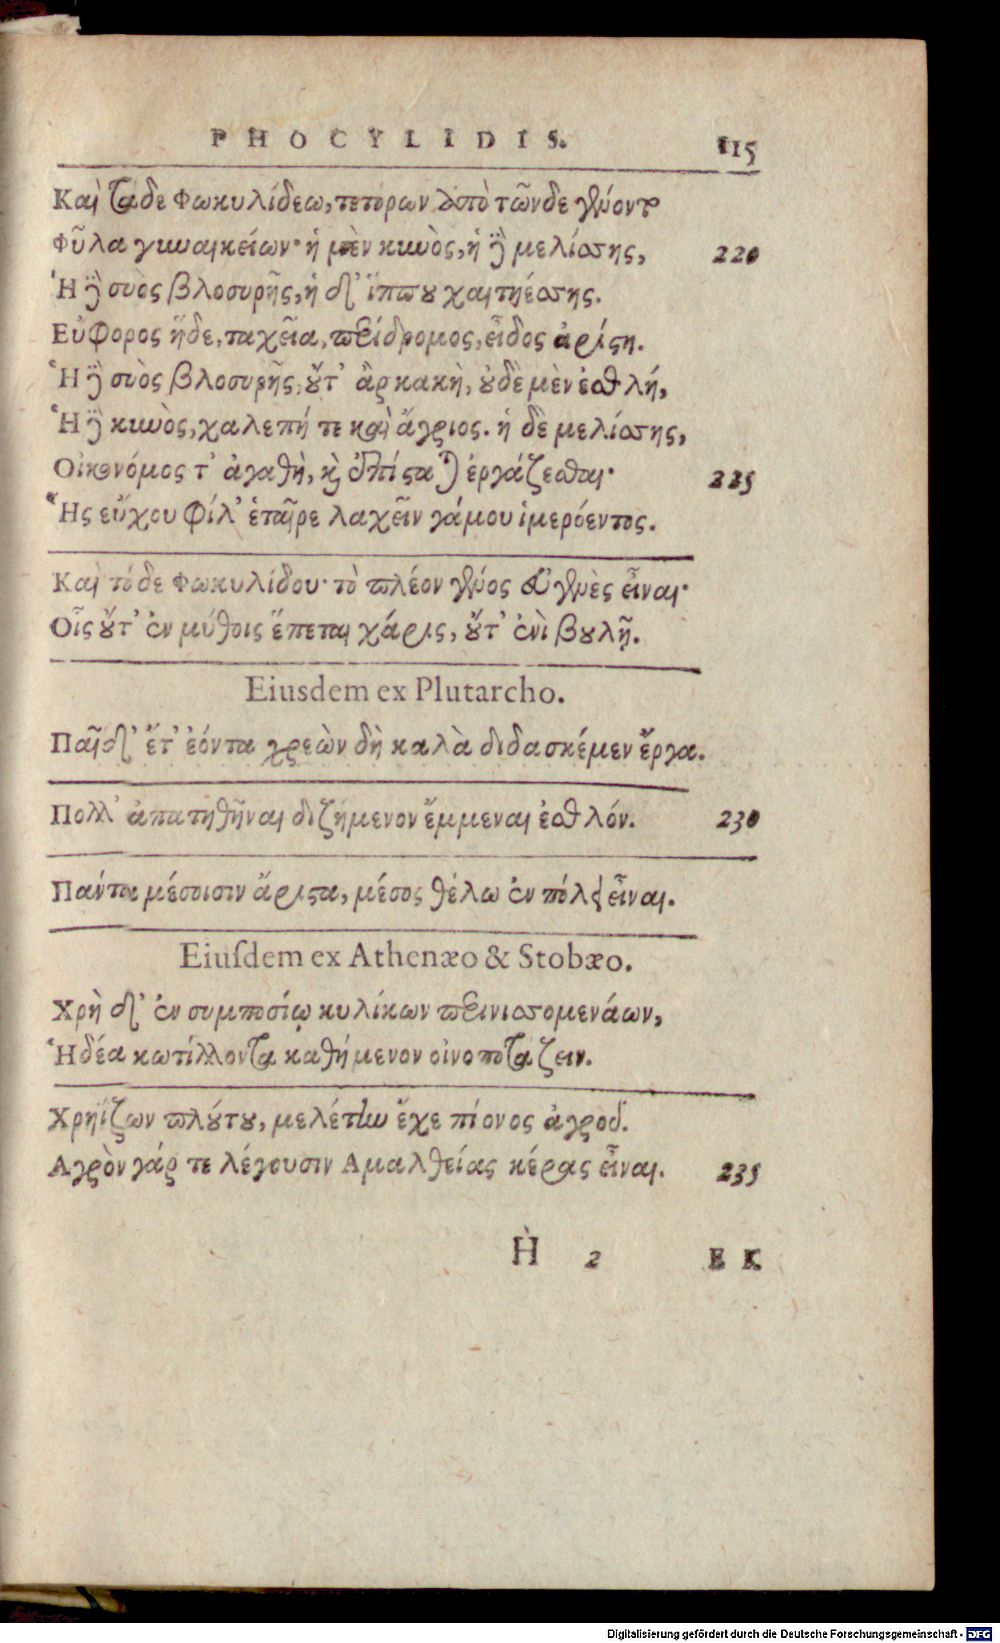 PHOCYLIDIS. 115
Καὶ τάδε Φωκυλίδεω, τετόρων ἀπὸ τῶνδε γένοντο
Φῦλα γυναικείων· ἡ μὲν κυνὸς, ἡ δὲ μελίσσης, 220
Ἡ δὲ συὸς βλοσυρῆς, ἡ δ' ἵππου χαιτηέσσης.
Εὐφορος ἥδε, ταχεῖα, περίδρομος, εἶδος ἀρίστη.
Ἡ δὲ συὸς βλοσυρῆς, οὔτ' ἂρ κακὴ, οὐδὲ μὲν ἐσθλή,
Ἡ δὲ κυνὸς, χαλεπή τε καὶ ἄγριος. ἡ δὲ μελίσσης,
Οἰκονόμος τ' ἀγαθὴ, καὶ ἐπίσταται ἐργάζεσθαι· 225
Ἧς εὔχου φίλ' ἑταῖρε λαχεῖν γάμου ἱμερόεντος.
Καὶ τόδε Φωκυλίδου· τὸ πλέον γένος εὐγενὲς εἶναι·
Οἷς οὔτ' ἐν μύθοις ἕπεται χάρις, οὔτ' ἐνὶ βουλῇ.
Eiusdem ex Plutarcho.
Παῖδ' ἔτ' ἐόντα χρεὼν δὴ καλὰ διδασκέμεν ἔργα.
Πολλ' ἀπατηθῆναι διζήμενον ἔμμεναι ἐσθλόν. 230
Πάντα μέσοισιν ἄριστα, μέσος θέλω ἐν πόλει εἶναι.
Eiusdem ex Athenæo & Stobæo.
Χρὴ δ' ἐν συμποσίῳ κυλίκων περινισσομενάων,
Ἡδέα κωτίλλοντα καθήμενον οἰνοποτάζειν.
Χρηΐζων πλούτου, μελέτην ἔχε πίονος ἀγροῦ.
Αγρὸν γάρ τε λέγουσιν Αμαλθείας κέρας εἶναι. 235
H 2 ΕΚ
Digitalisierung gefördert durch die Deutsche Forschungsgemeinschaft - DFG